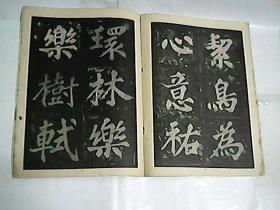 㓗鳥為
心意祐
環林樂
樂樹軾